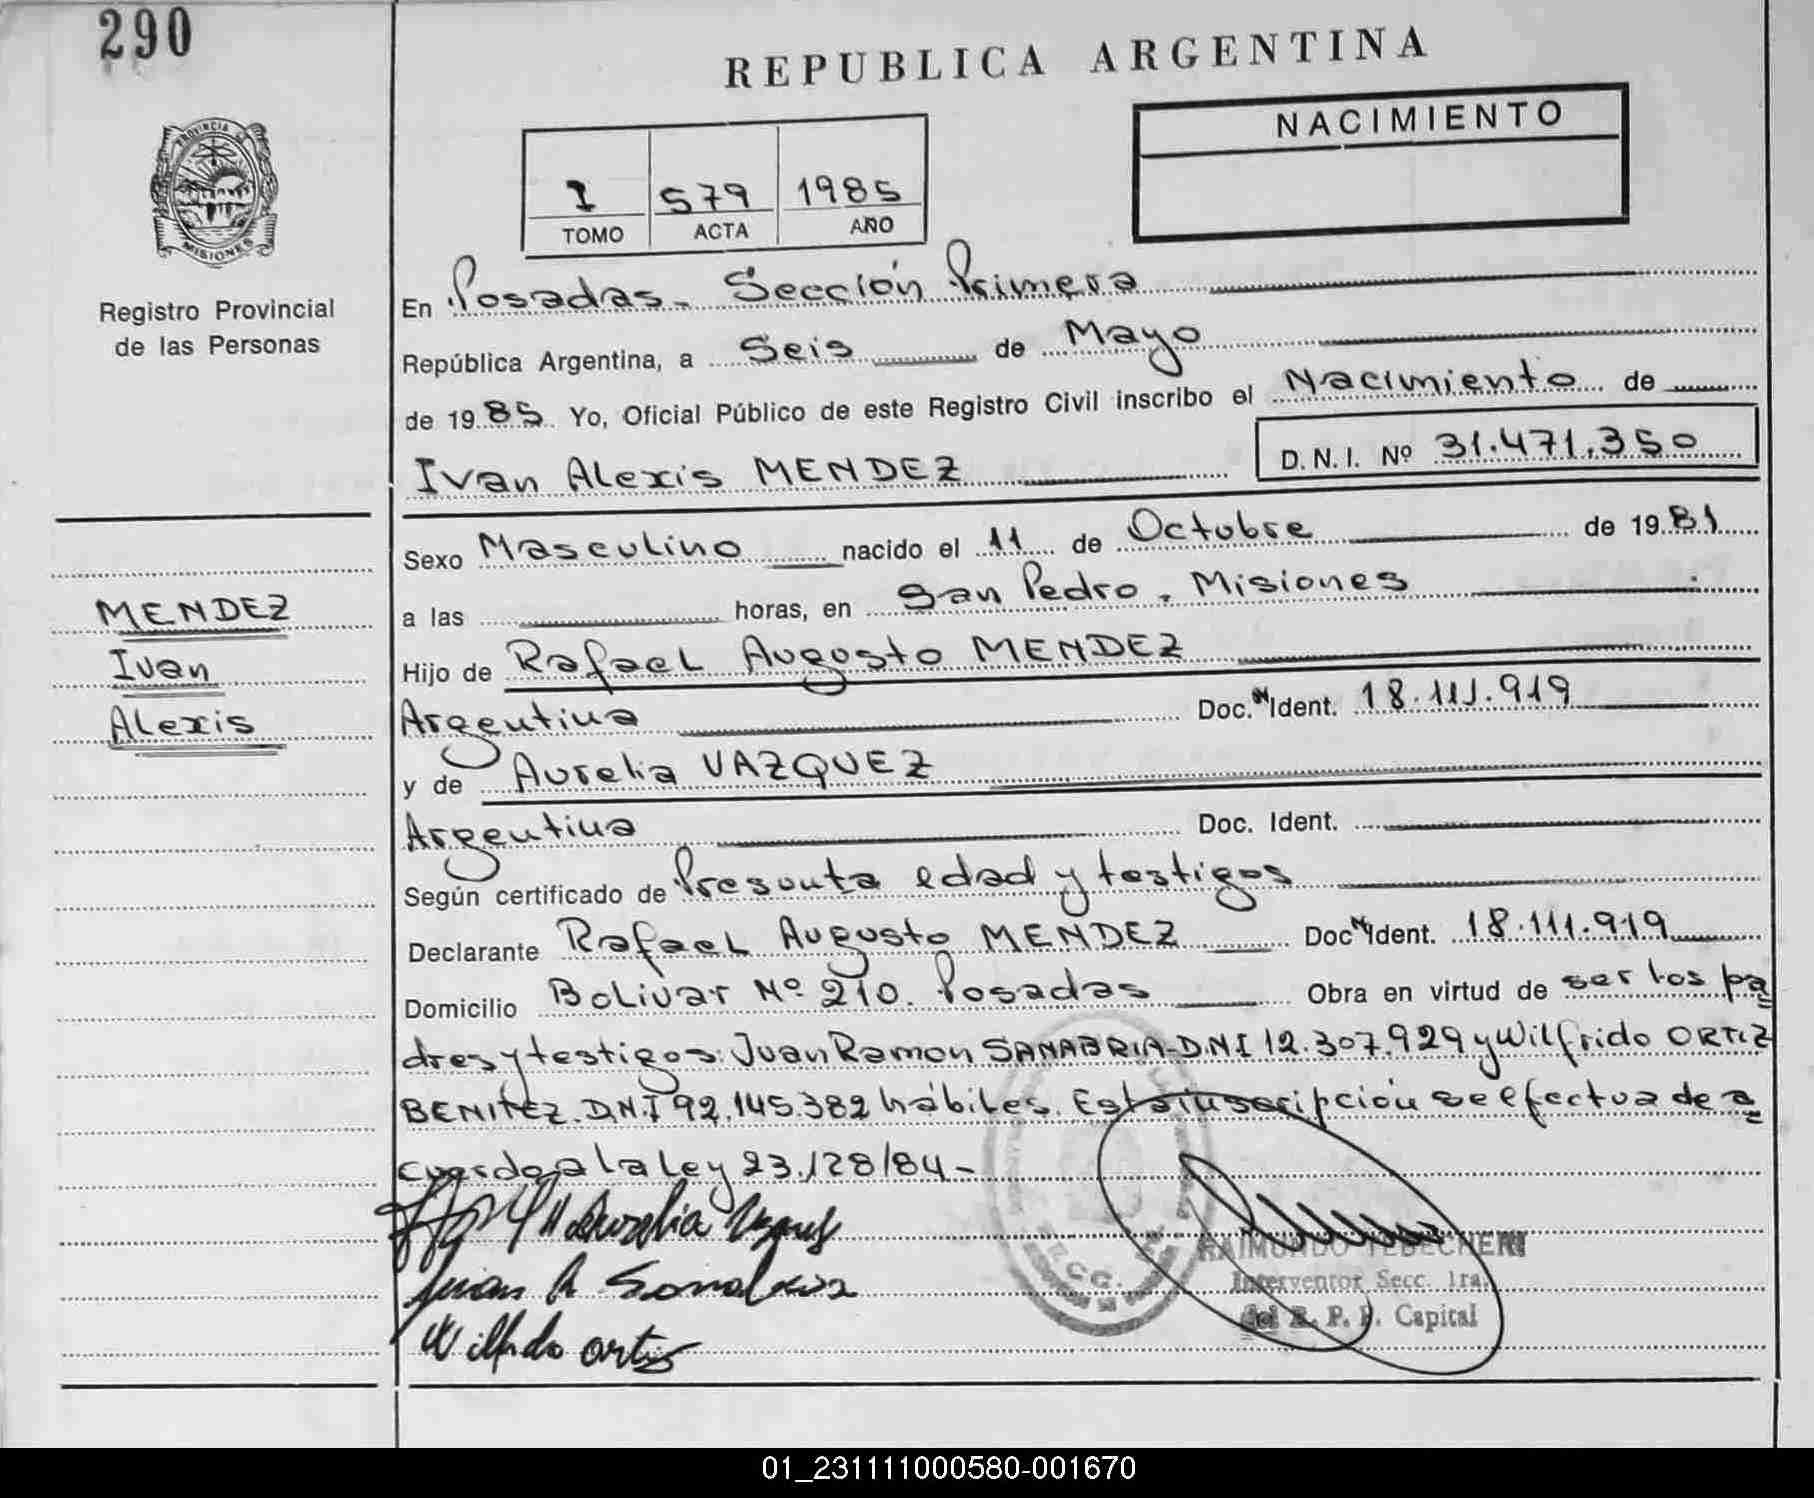 290
REPUBLICA ARGENTINA
NACIMIENTO
I 579 1985
TOMO ACTA AÑO
PROVINCIA DE
MISIONES
Registro Provincial
de las Personas
En Posadas - Sección Primera
República Argentina, a Seis de Mayo
de 1985 Yo, Oficial Público de este Registro Civil inscribo el Nacimiento de
Ivan Alexis MENDEZ D. N. I. Nº 31.471.350
Sexo Masculino nacido el 11 de Octubre de 1981
a las horas, en San Pedro, Misiones
Hijo de Rafael Augusto MENDEZ
Argentina Doc. N Ident. 18.111.919
y de Aurelia VAZQUEZ
Argentina Doc. Ident.
Según certificado de Presunta edad y testigos
Declarante Rafael Augusto MENDEZ Doc N Ident. 18.111.919
Domicilio Bolivar Nº 210. Posadas Obra en virtud de ser los pa
dres y testigos: Juan Ramon SANABRIA-D.N.I 12.307.929 y Wilfrido ORTIZ
BENITEZ. D.N.I 92.145.382 hábiles. Esta inscripción se efectua de a
cuerdo a la Ley 23.128/84-
MENDEZ
Ivan
Alexis
Aurelia
Juan R Sanabria
Wilfrido Ortiz
RAIMUNDO
Interventor Secc. 1ra.
del R. P. P. Capital
01_231111000580-001670